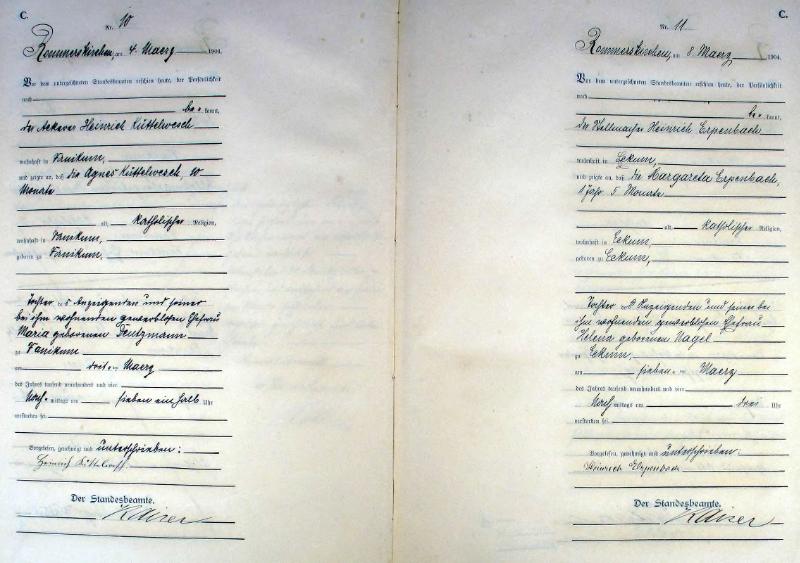 C.
Nr. 10
Rommerskirchen, am 4. Maerz 1904.
Vor dem unterzeichneten Standesbeamten erschien heute, der Persönlichkeit
nach
be= kannt,
der Ackerer Heinrich Küttelwesch
wohnhaft in Vanikum,
und zeigte an, daß die Agnes Küttelwesch, 10
Monate
alt, katholischer Religion,
wohnhaft in Vanikum,
geboren zu Vanikum,
Tochter des Anzeigenden und seiner
bei ihm wohnenden gewerblosen Ehefrau
Maria geborenen
zu Vanikum
am drei ten Maerz
des Jahres tausend neunhundert und vier
Nach= mittags um sieben ein halb Uhr
verstorben sei.
Vorgelesen, genehmigt und unterschrieben:
Heinrich Küttelwesch
Der Standesbeamte.
Kaiser
C.
Nr. 11
Rommerskirchen, am 8. Maerz 1904.
Vor dem unterzeichneten Standesbeamten erschien heute, der Persönlichkeit
nach
be= kannt,
der Stellmacher Heinrich Erpenbach
wohnhaft in Eckum,
und zeigte an, daß die Margareta Erpenbach,
1 Jahr 5 Monate
alt, katholischer Religion,
wohnhaft in Eckum,
geboren zu Eckum,
Tochter des Anzeigenden und seiner bei
ihm wohnenden gewerblosen Ehefrau
Helena geborenen Nagel
zu Eckum,
am sieben ten Maerz
des Jahres tausend neunhundert und vier
Nach mittags um drei Uhr
verstorben sei.
Vorgelesen, genehmigt und unterschrieben
Heinrich Erpenbach
Der Standesbeamte.
Kaiser